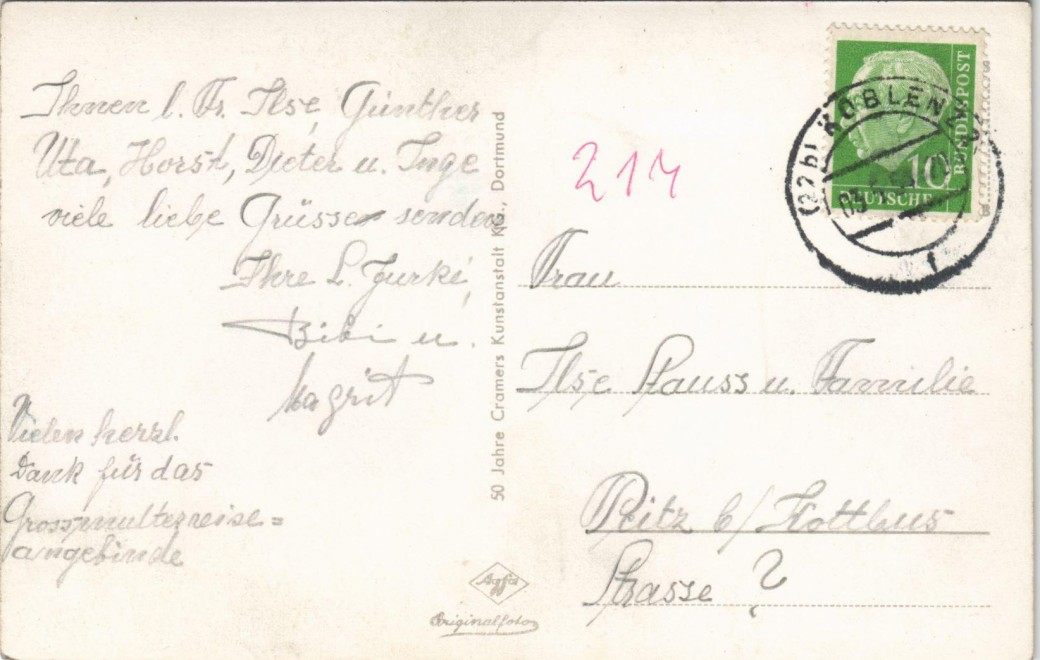 Ihnen l. Fr. Ilse, Günther
Uta, Horst, Dieter u. Inge
viele liebe Grüsse senden
Ihre L. Jurke,
Bibi u.
Magrit
Vielen herzl.
Dank für das
Grossmutterreise=
angebinde
50 Jahre Cramers Kunstanstalt KG., Dortmund
Agfa
Originalfoto
214
DEUTSCHE
BUNDESPOST
10
(22b) KOBLENZ
Frau
Ilse Stauss u. Familie
b/ Kottbus
Strasse ?